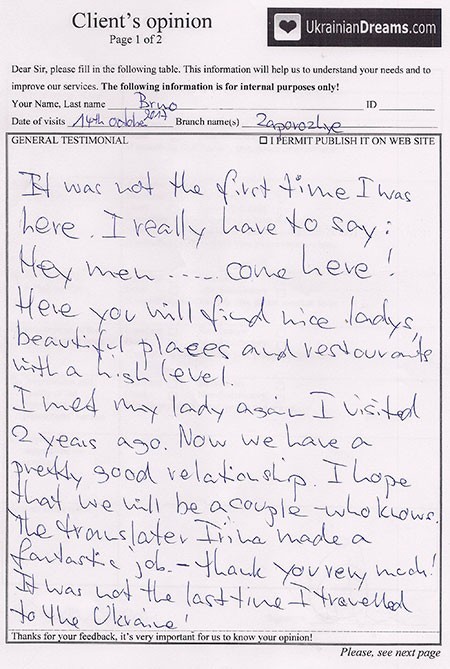 Client's opinion
Page 1 of 2
UkrainianDreams.com
Dear Sir, please fill in the following table. This information will help us to understand your needs and to
improve our services. The following information is for internal purposes only!
Your Name, Last name Bruo ID
Date of visits 14th october 2017 Branch name(s) Zaporozhye
GENERAL TESTIMONIAL ☐ I PERMIT PUBLISH IT ON WEB SITE
It was not the first time I was
here. I really have to say:
Hey men ..... come here!
Here you will find nice ladys,
beautiful places and restourants
with a high level.
I met my lady again I visited
2 years ago. Now we have a
pretty good relationship. I hope
that we will be a couple - who knows.
The translater Irina made a
fantastic job. - thank you very much!
It was not the last time I travelled
to the Ukraine!
Thanks for your feedback, it's very important for us to know your opinion!
Please, see next page